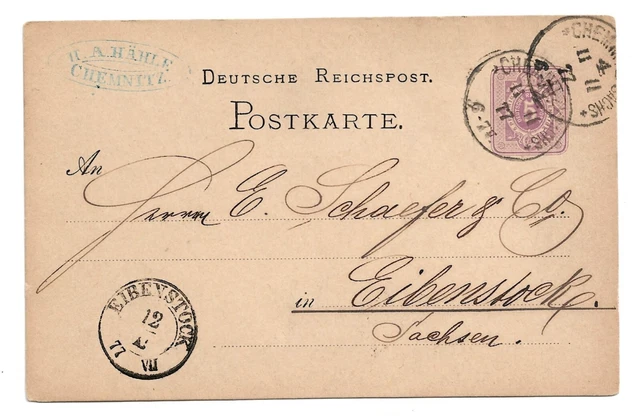 H. A. HÄHLE
CHEMNITZ.
DEUTSCHE REICHSPOST.
POSTKARTE.
An
Herren E. Schaefer & Co.
in Eibenstock.
Sachsen.
EIBENSTOCK
12
VII
77
CHEMN
11
11
77